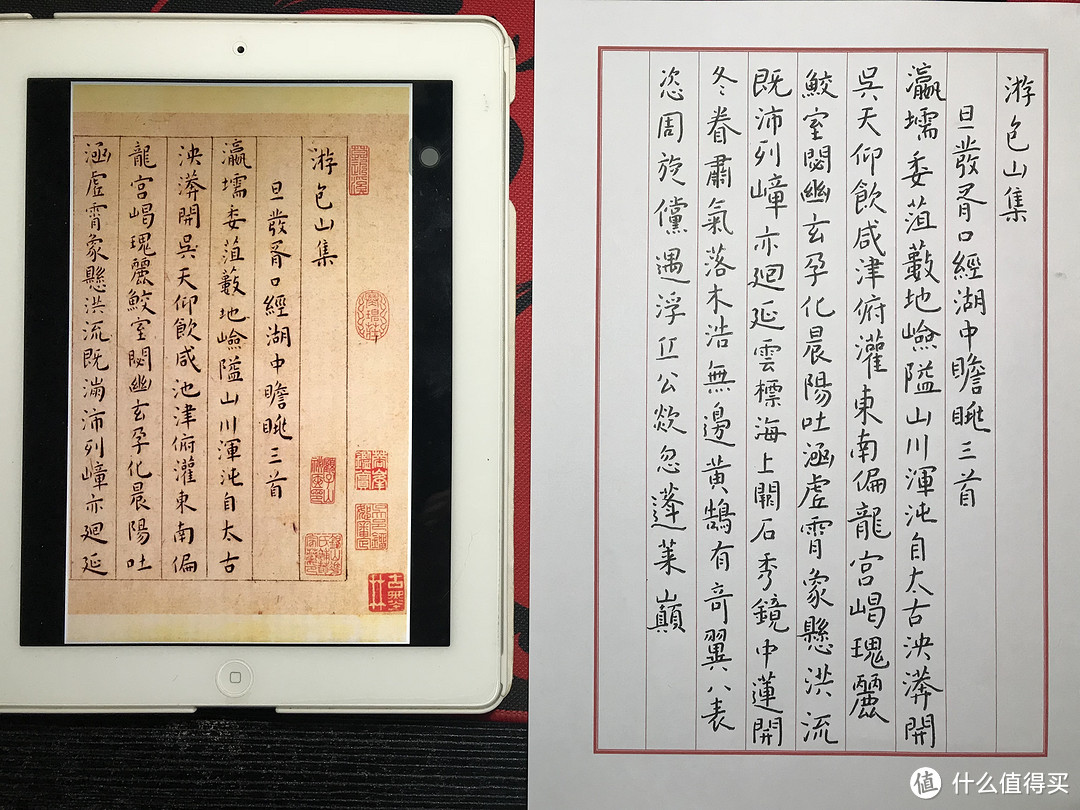 游包山集
旦發胥口經湖中瞻眺三首
瀛壖委菹藪地嶮隘山川渾沌自太古
泱漭開吳天仰飲咸池津俯灌東南偏
龍宮崵瑰麗鮫室閟幽玄孕化晨陽吐
涵虛霄象懸洪流既滿沛列嶂亦廻延
游包山集
旦發胥口經湖中瞻眺三首
瀛壖委菹藪地嶮隘山川渾沌自太古泱漭開
吳天仰飲咸津俯灌東南偏龍宮崵瑰麗
鮫室閟幽玄孕化晨陽吐涵虛霄象懸洪流
既沛列嶂亦廻延雲標海上闕石秀鏡中蓮開
冬眷肅氣落木浩無邊黃鵠有奇翼八表
恣周旋儻遇浮丘公欻忽蓬萊巔
值 什么值得买